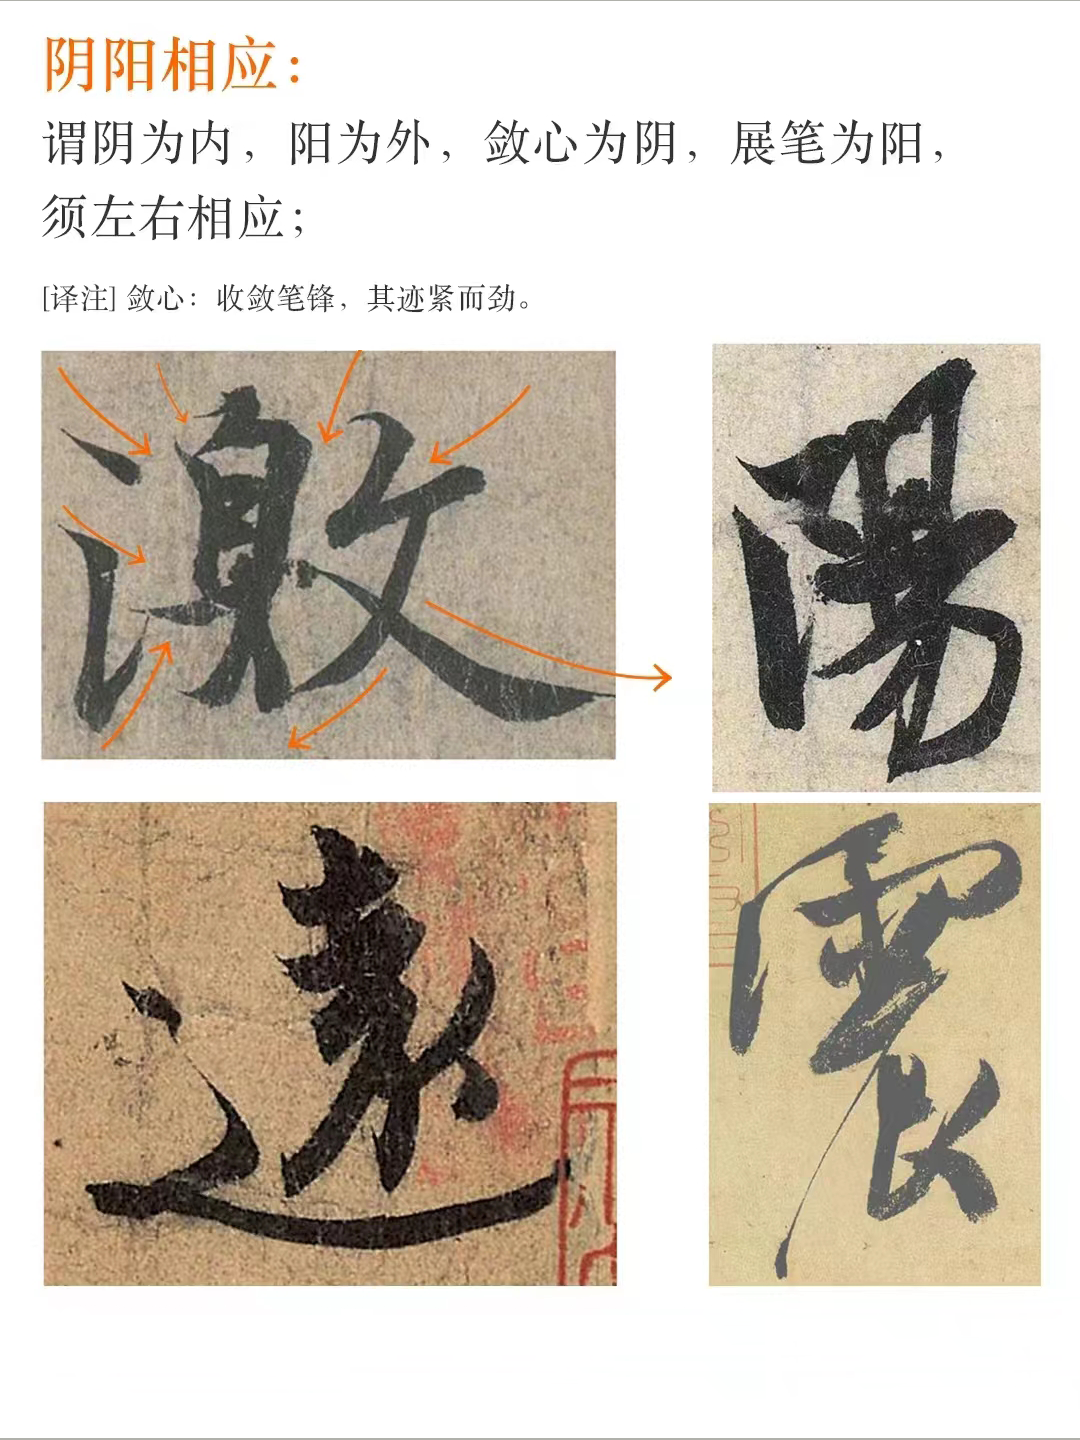 阴阳相应：
谓阴为内，阳为外，敛心为阴，展笔为阳，
须左右相应；
[译注] 敛心：收敛笔锋，其迹紧而劲。
激
陽
遠
震